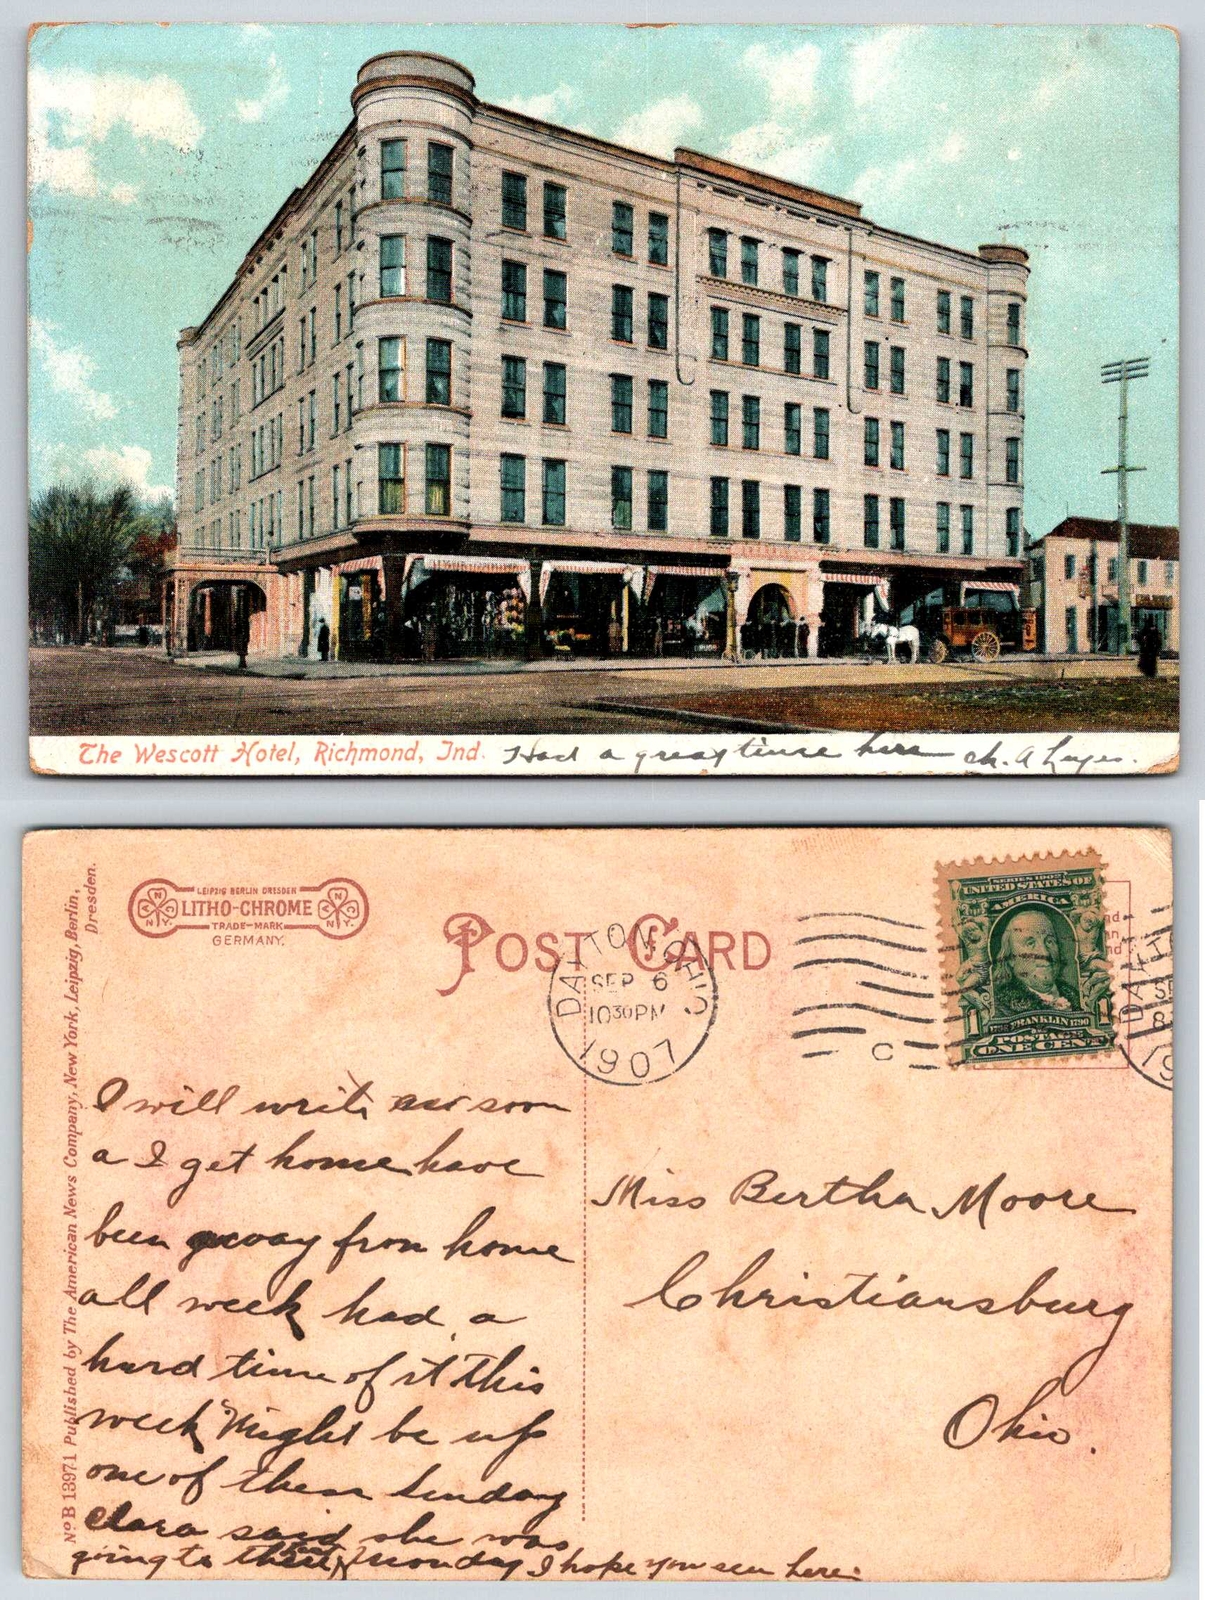 The Wescott Hotel, Richmond, Ind. Had a great time here
Nº B 13971 Published by The American News Company, New York, Leipzig, Berlin,
Dresden.
LEIPZIG BERLIN DRESDEN
LITHO-CHROME
TRADE-MARK
GERMANY.
POST CARD
DAYTON, OHIO
SEP 6
10 30 PM
1907
C
SERIES 1902
UNITED STATES OF
AMERICA
1 1
FRANKLIN 1790
POSTAGE
ONE CENT
I will write as soon
a I get home have
been away from home
all week had a
hard time of it this
week Might be up
one of these Sunday
Clara said she was
going to Monday I hope you seen here
Miss Bertha Moore
Christiansburg
Ohio.